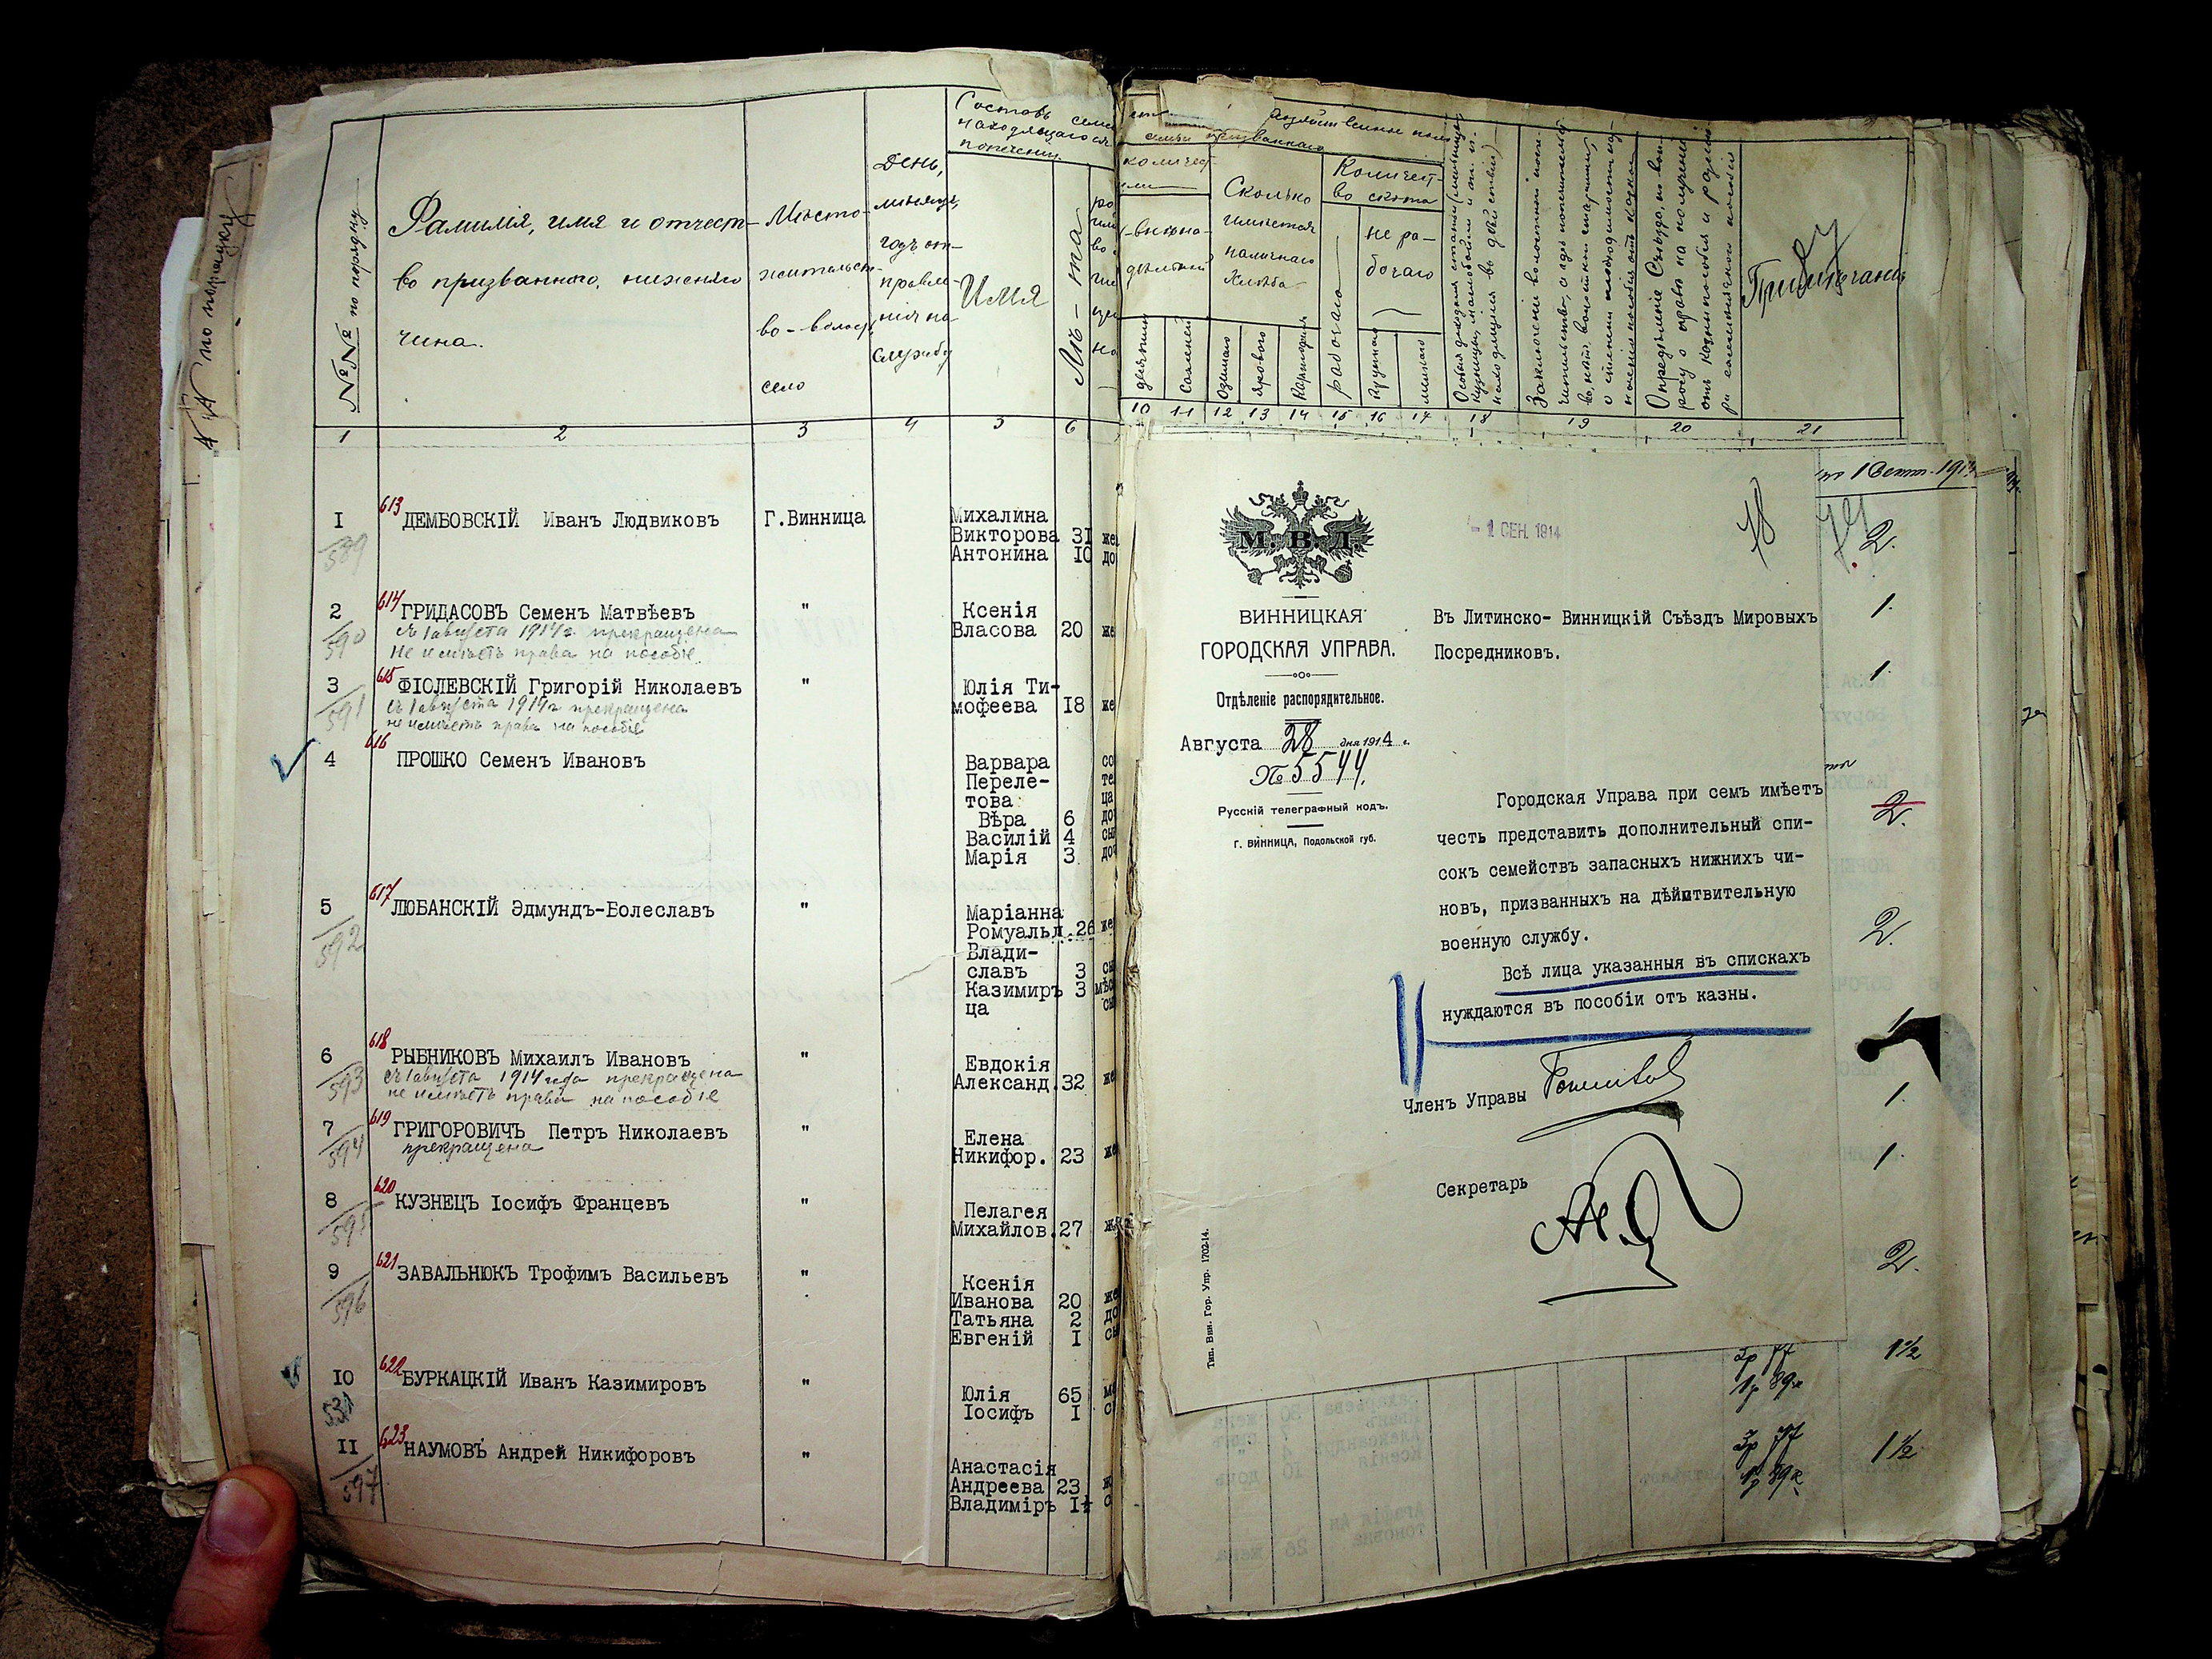 №№ по порядку
Фамилія, имя и отчест-
во призваннаго, нижняго
чина.
Мѣсто-
жительст-
во - волост,
село
День,
мѣсяцъ,
годъ от-
правле-
нія на
службу
Составъ семьи
находящагося
попеченіи
Имя
Лѣ-та
1 2 3 4 5 6
I 613 ДЕМБОВСКІЙ Иванъ Людвиковъ Г.Винница Михалина
Викторова 31 же
589 Антонина 10 до
2 614 ГРИДАСОВЪ Семенъ Матвѣевъ " Ксенія
590 съ 1 августа 1914 г. прекращена Власова 20 же
Не имѣетъ права на пособіе
3 615 ФІОЛЕВСКІЙ Григорій Николаевъ " Юлія Ти-
591 съ 1 августа 1914 г прекращена мофеева 18 же
не имѣетъ права на пособіе
4 616 ПРОШКО Семенъ Ивановъ Варвара со
Переле- те
това ца
Вѣра 6 до
Василій 4 сы
Марія 3 доч
5 617 ЛЮБАНСКІЙ Эдмундъ-Болеславъ " Маріанна
592 Ромуальд. 26 же
Влади-
славъ 3 сы
Казимиръ 3 мѣс
ца сы
6 618 РЫБНИКОВЪ Михаилъ Ивановъ " Евдокія
593 съ 1 августа 1914 года прекращена Александ. 32 же
не имѣетъ права на пособіе
7 619 ГРИГОРОВИЧЪ Петръ Николаевъ " Елена
594 прекращена Никифор. 23 же
8 620 КУЗНЕЦЪ Іосифъ Францевъ " Пелагея
595 Михайлов. 27 ж
9 621 ЗАВАЛЬНЮКЪ Трофимъ Васильевъ " Ксенія
596 Иванова 20 же
Татьяна 2 до
Евгеній I сы
10 622 БУРКАЦКІЙ Иванъ Казимировъ " Юлія 65 ма
531 Іосифъ I с
II 623 НАУМОВЪ Андрей Никифоровъ " Анастасія
597 Андреева 23 ж
Владиміръ I½ с
№№ по порядку
семьи призваннаго
Сколько
имѣется
наличнаго
хлѣба
Количест-
во скота
рабочаго
не ра-
бочаго
десятинъ
Саженей
Озимаго
Ярового
Картофеля
Крупнаго
мелкаго
Примѣчаніе
10 11 12 13 14 15 16 17 18 19 20 21
М. В. Д.
ВИННИЦКАЯ
ГОРОДСКАЯ УПРАВА.
Отдѣленіе распорядительное.
Августа 28 дня 1914 г.
№ 5544.
Русскій телеграфный кодъ.
г. ВИННИЦА, Подольской губ.
- 1 СЕН. 1914
Въ Литинско- Винницкій Съѣздъ Мировыхъ
Посредниковъ.
Городская Управа при семъ имѣетъ
честь представить дополнительный спи-
сокъ семействъ запасныхъ нижнихъ чи-
новъ, призванныхъ на дѣйштвительную
военную службу.
Всѣ лица указанныя въ спискахъ
нуждаются въ пособіи отъ казны.
Членъ Управы
Секретарь
Тип. Вин. Гор. Упр. 1702-14.
2.
1.
1.
2.
2.
1
1.
1.
2.
2р 77
1р 89к
1½
2р 77
1р 89к
1½